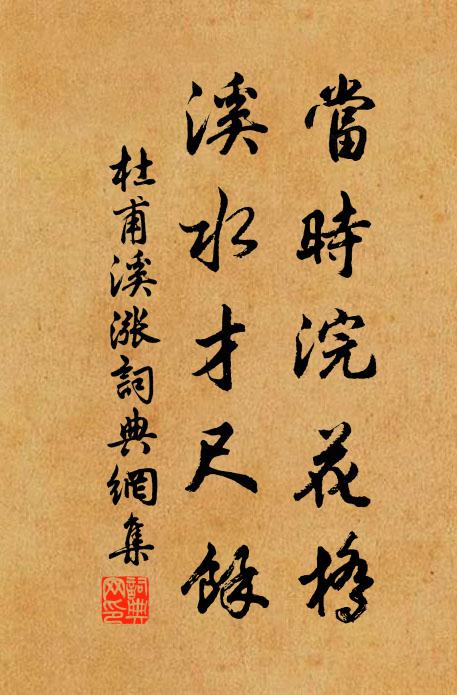 當時浣花橋
溪水才尺餘
杜甫溪漲詞典網集
詞典
网印